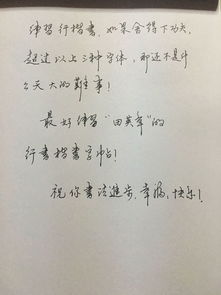 练習行楷書，如果舍得下功夫，
超过以上三种字体，那还不是什
么天大的難事！
最好练習“田英章”的
行書楷書字帖！
祝你書法進步，幸福，快乐！